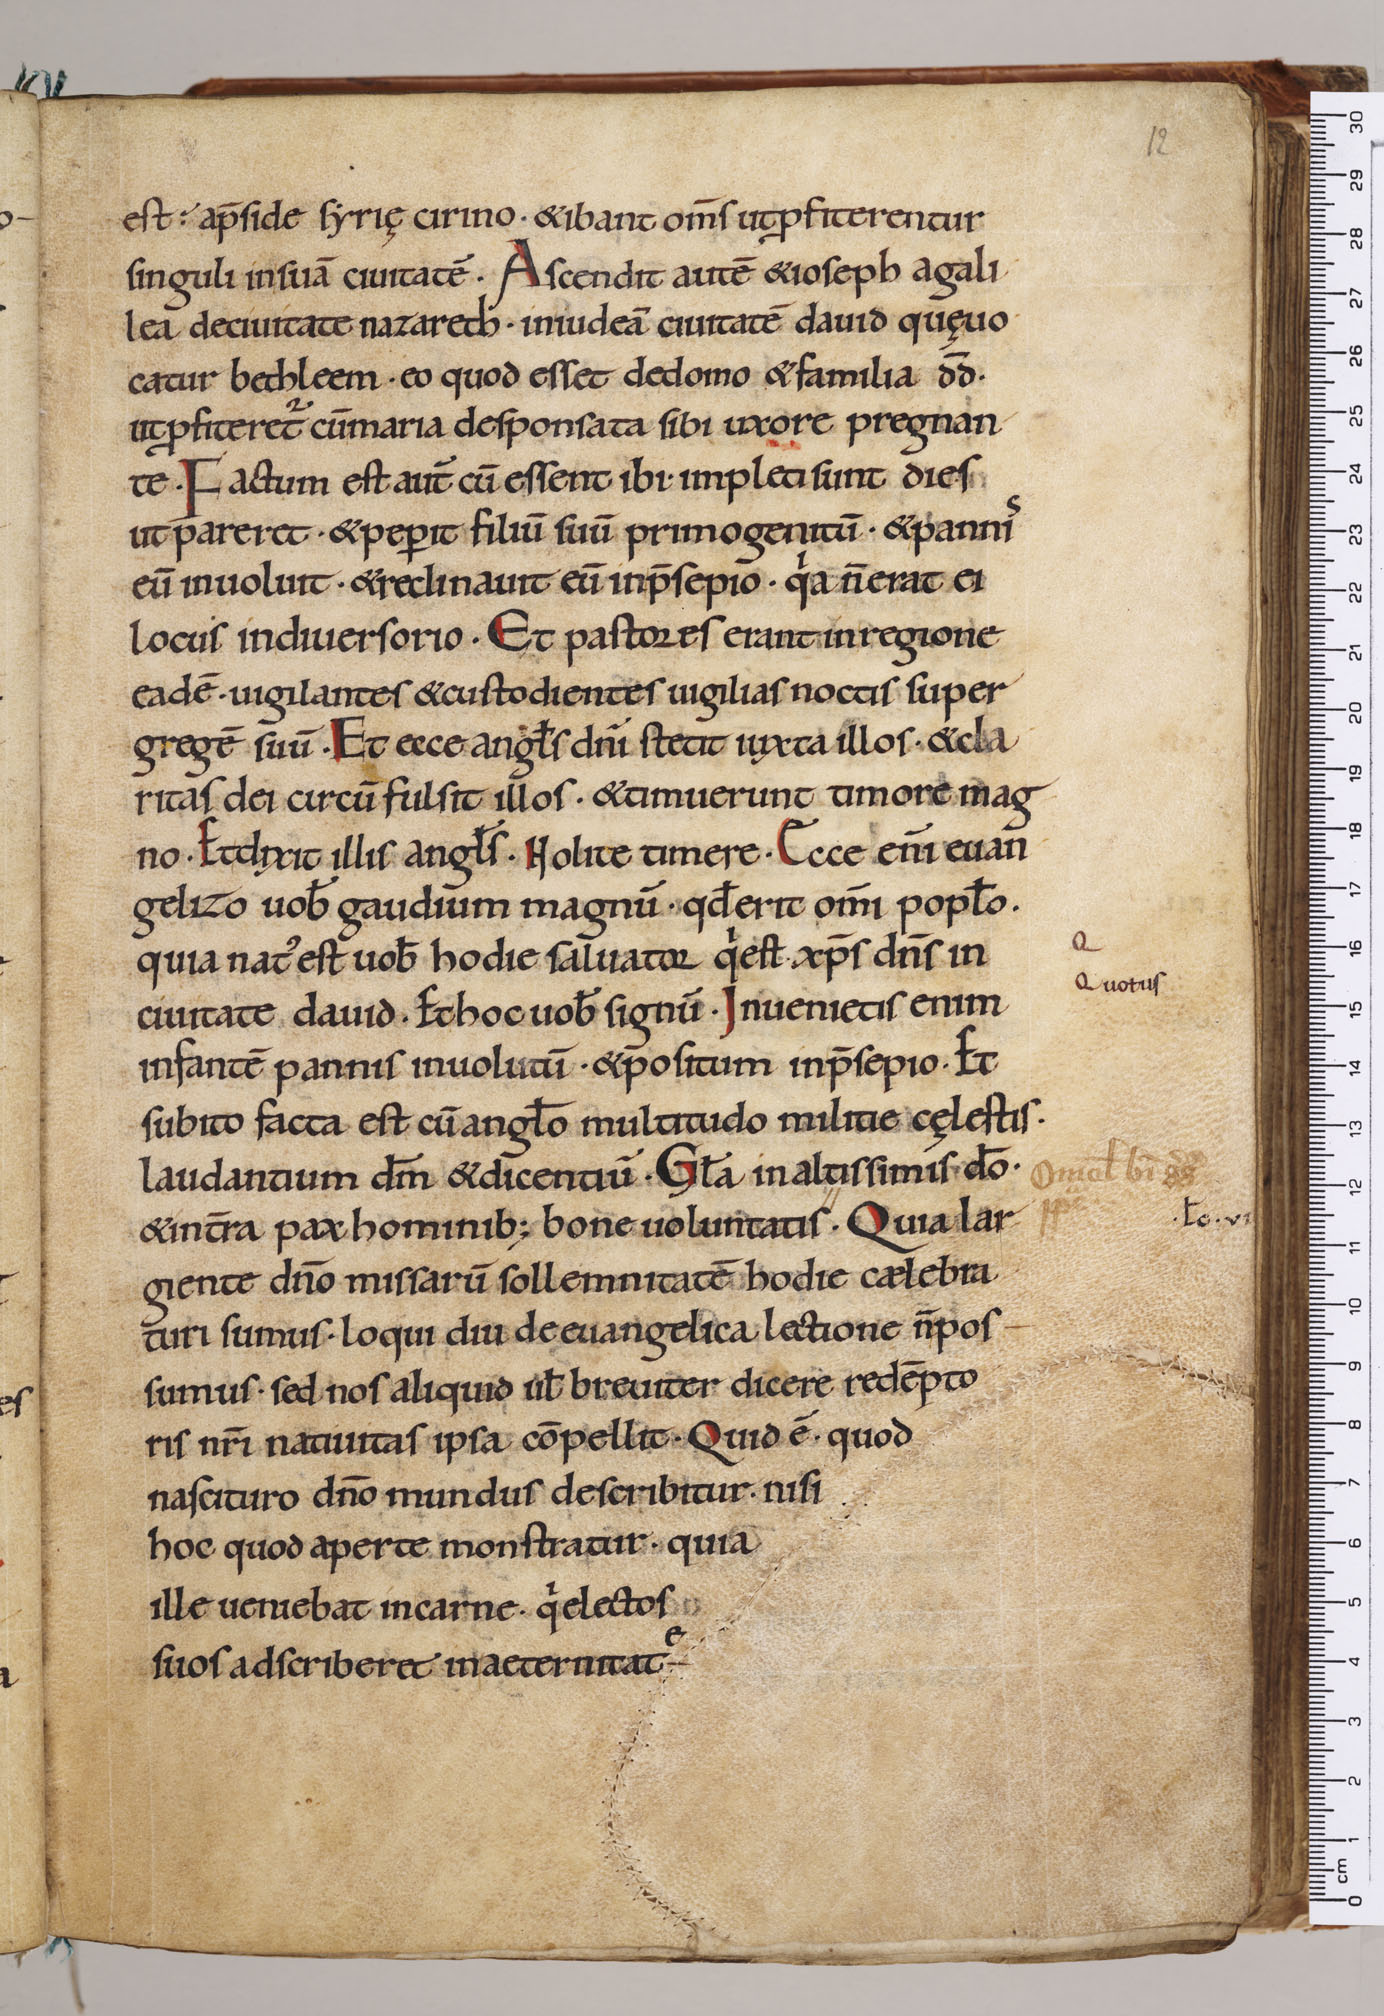 12
est: ap̄side syrię cirino · &ibant om̄s utꝓfiterentur
singuli insuā ciuitatē · Ascendit autē &ioseph agali
lea deciuitate nazareth · iniudeā ciuitatē dauid quęuo
catur bethleem · eo quod esset dedomo &familia dd̄ ·
utꝓfiteret᷑ cūmaria desponsata sibi uxore pregnan
te · Factum est aut̄ cū essent ibi · impleti sunt dies
ut pareret · &peꝑit filiū suū primogenitū · &pannis
eū inuoluit · &reclinauit eū inp̄sepio · qͥa n̄erat ei
locus indiuersorio · Et pastores erant inregione
eadē · uigilantes &custodientes uigilias noctis super
gregē suū · Et ecce angl̄s dn̄i stetit iuxta illos · &cla
ritas dei circū fulsit illos · &timuerunt timore mag
no · Etdixit illis angl̄s · Nolite timere · Ecce en̄i euan
gelizo uob̄ gaudium magnū · qd̄erit om̄i popl̄o ·
quia natꝰ est uob̄ hodie saluator qͥest · xp̄s dn̄s in
Q
Quotus
ciuitate dauid · Ethoc uob̄ signū · Inuenietis enim
infantē pannis inuolutū · &p̄ositum inp̄sepio · Et
subito facta est cū angl̄o multitudo militie cęlestis ·
laudantium dm̄ &dicentiū · Gl̄a inaltissimis do̅ ·
&int̄ra pax hominib; bone uoluntatis · Quia lar
· Lc · vi
giente dn̄o missarū sollemnitatē hodie cælebra
turi sumus · loqui diu deeuangelica lectione n̄pos
sumus · sed nos aliquid ul̄ breuiter dicere redēpto
ris nr̄i natiuitas ipsa cōpellit · Quid ē · quod
nascituro dn̄o mundus describitur · nisi
hoc quod aperte monstratur · quia
ille ueniebat incarne · qͥelectos
suos adscriberet inaeternitate